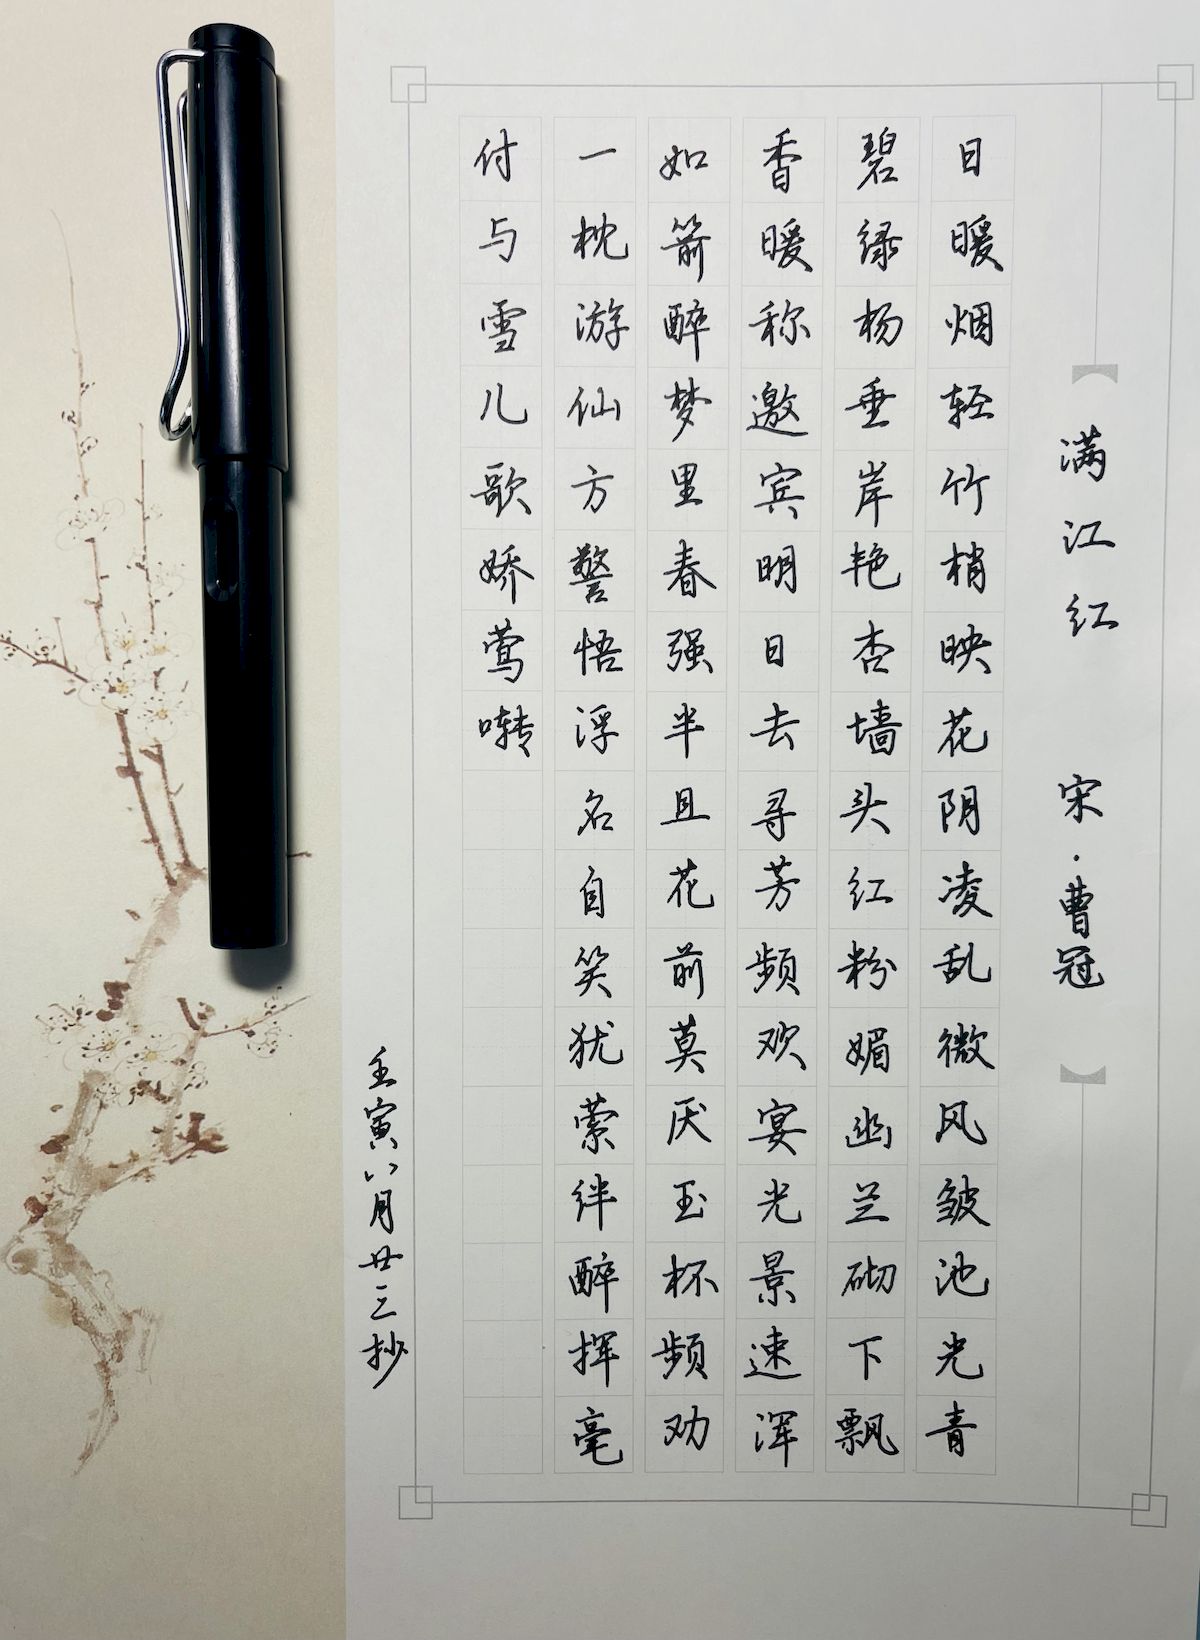 满江红 宋·曹冠
日暖烟轻竹梢映花阴凌乱微风皱池光青
碧绿杨垂岸艳杏墙头红粉媚幽兰砌下飘
香暖称邀宾明日去寻芳频欢宴光景速浑
如箭醉梦里春强半且花前莫厌玉杯频劝
一枕游仙方警悟浮名自笑犹萦绊醉挥毫
付与雪儿歌娇莺啭
壬寅八月廿三抄